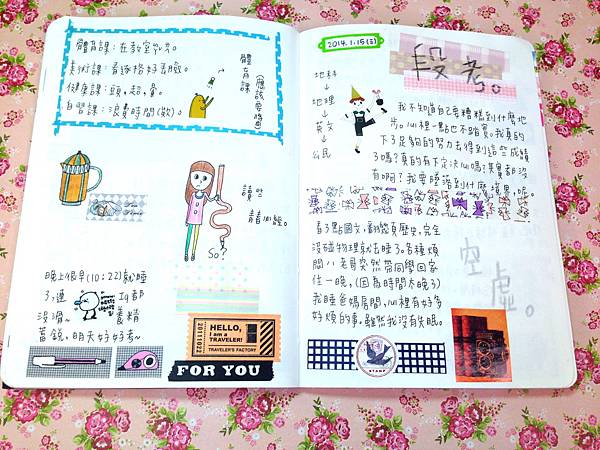 體育課：在教室內。
美術課：看逐格好舌臉。
健康課：頭、超、暈。
自習課：浪費時間(欸)。
體育課
(應該要唱
So?
晚上很早(10:22)就睡
了,連
IG都
沒滑~
養精
蓄銳,明天好好考~
HELLO,
I am a
TRAVELER!
TRAVELER'S FACTORY
20111022
FOR YOU
2014.1.15(三)
段考。
地科
↓
地理
↓
英文
↓
公民
我不知道自己要糟糕到什麼地
步。心裡一點也不踏實。我真的
下了足夠的努力去得到這些成績
了嗎?真的有下定決心嗎?其實都沒
有啊?我要墮落到什麼境界呢。
看了點國文,翻幾頁歷史,完全
沒碰物理就去睡了。各種煩
悶八老哥突然帶同學回家
住一晚,(因為時間太晚了)
我睡爸媽房間,心裡有好多
好煩的事。雖然我沒有失眠。
空虛。
STAMP